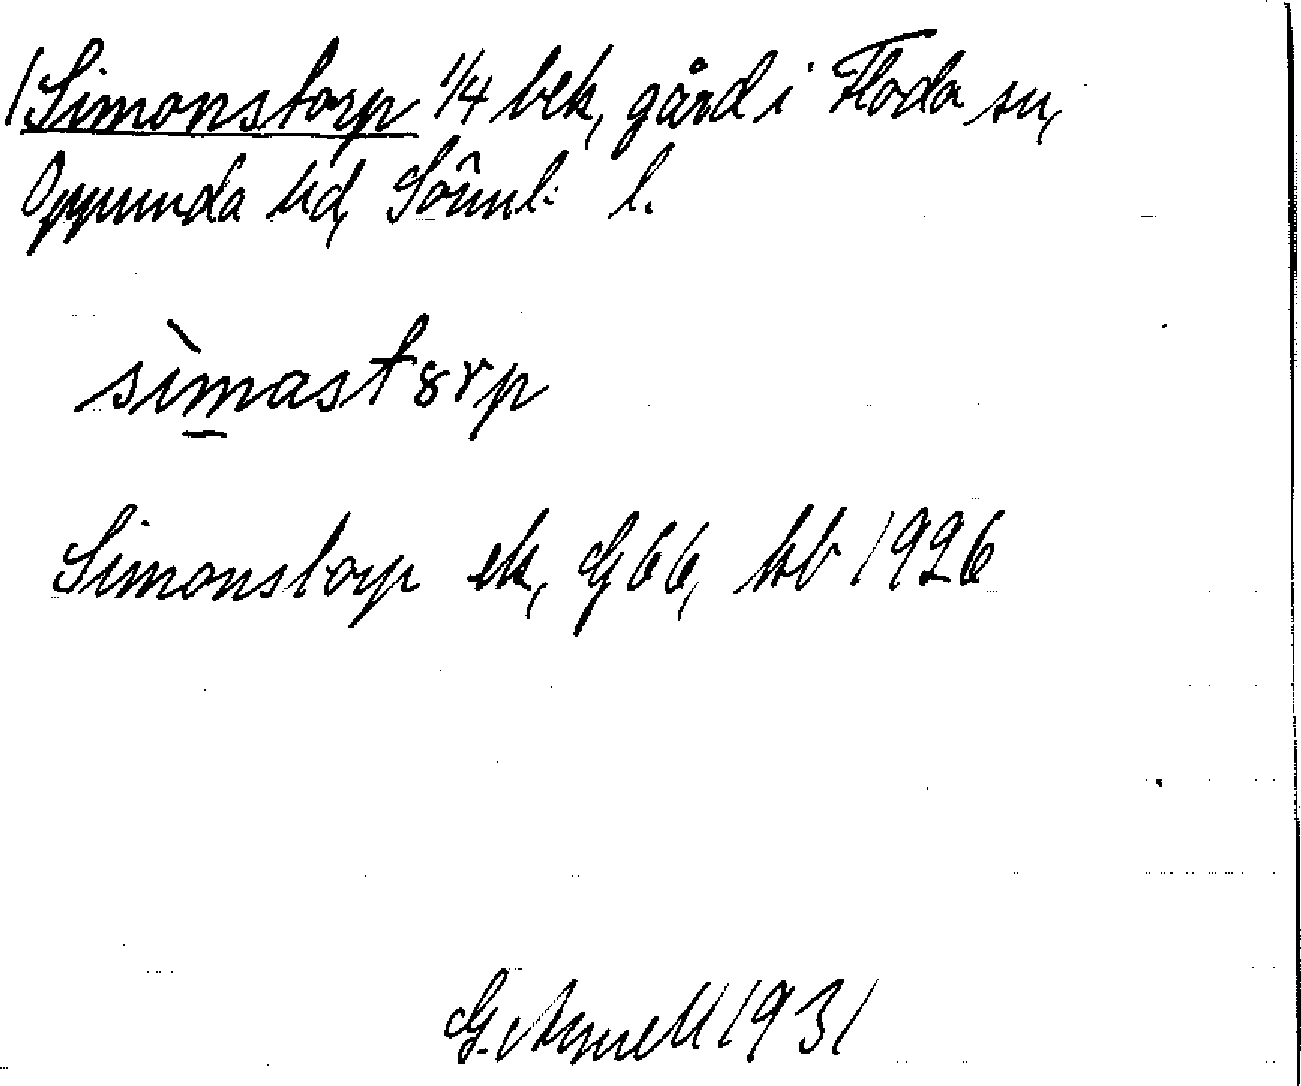 /Simonstorp 1/4 bek, gård i Floda sn,
Oppunda hd, Sörml: l.
sìmast8rp
Simonstorp ek, G66, kb 1926
G. Arnell 1931